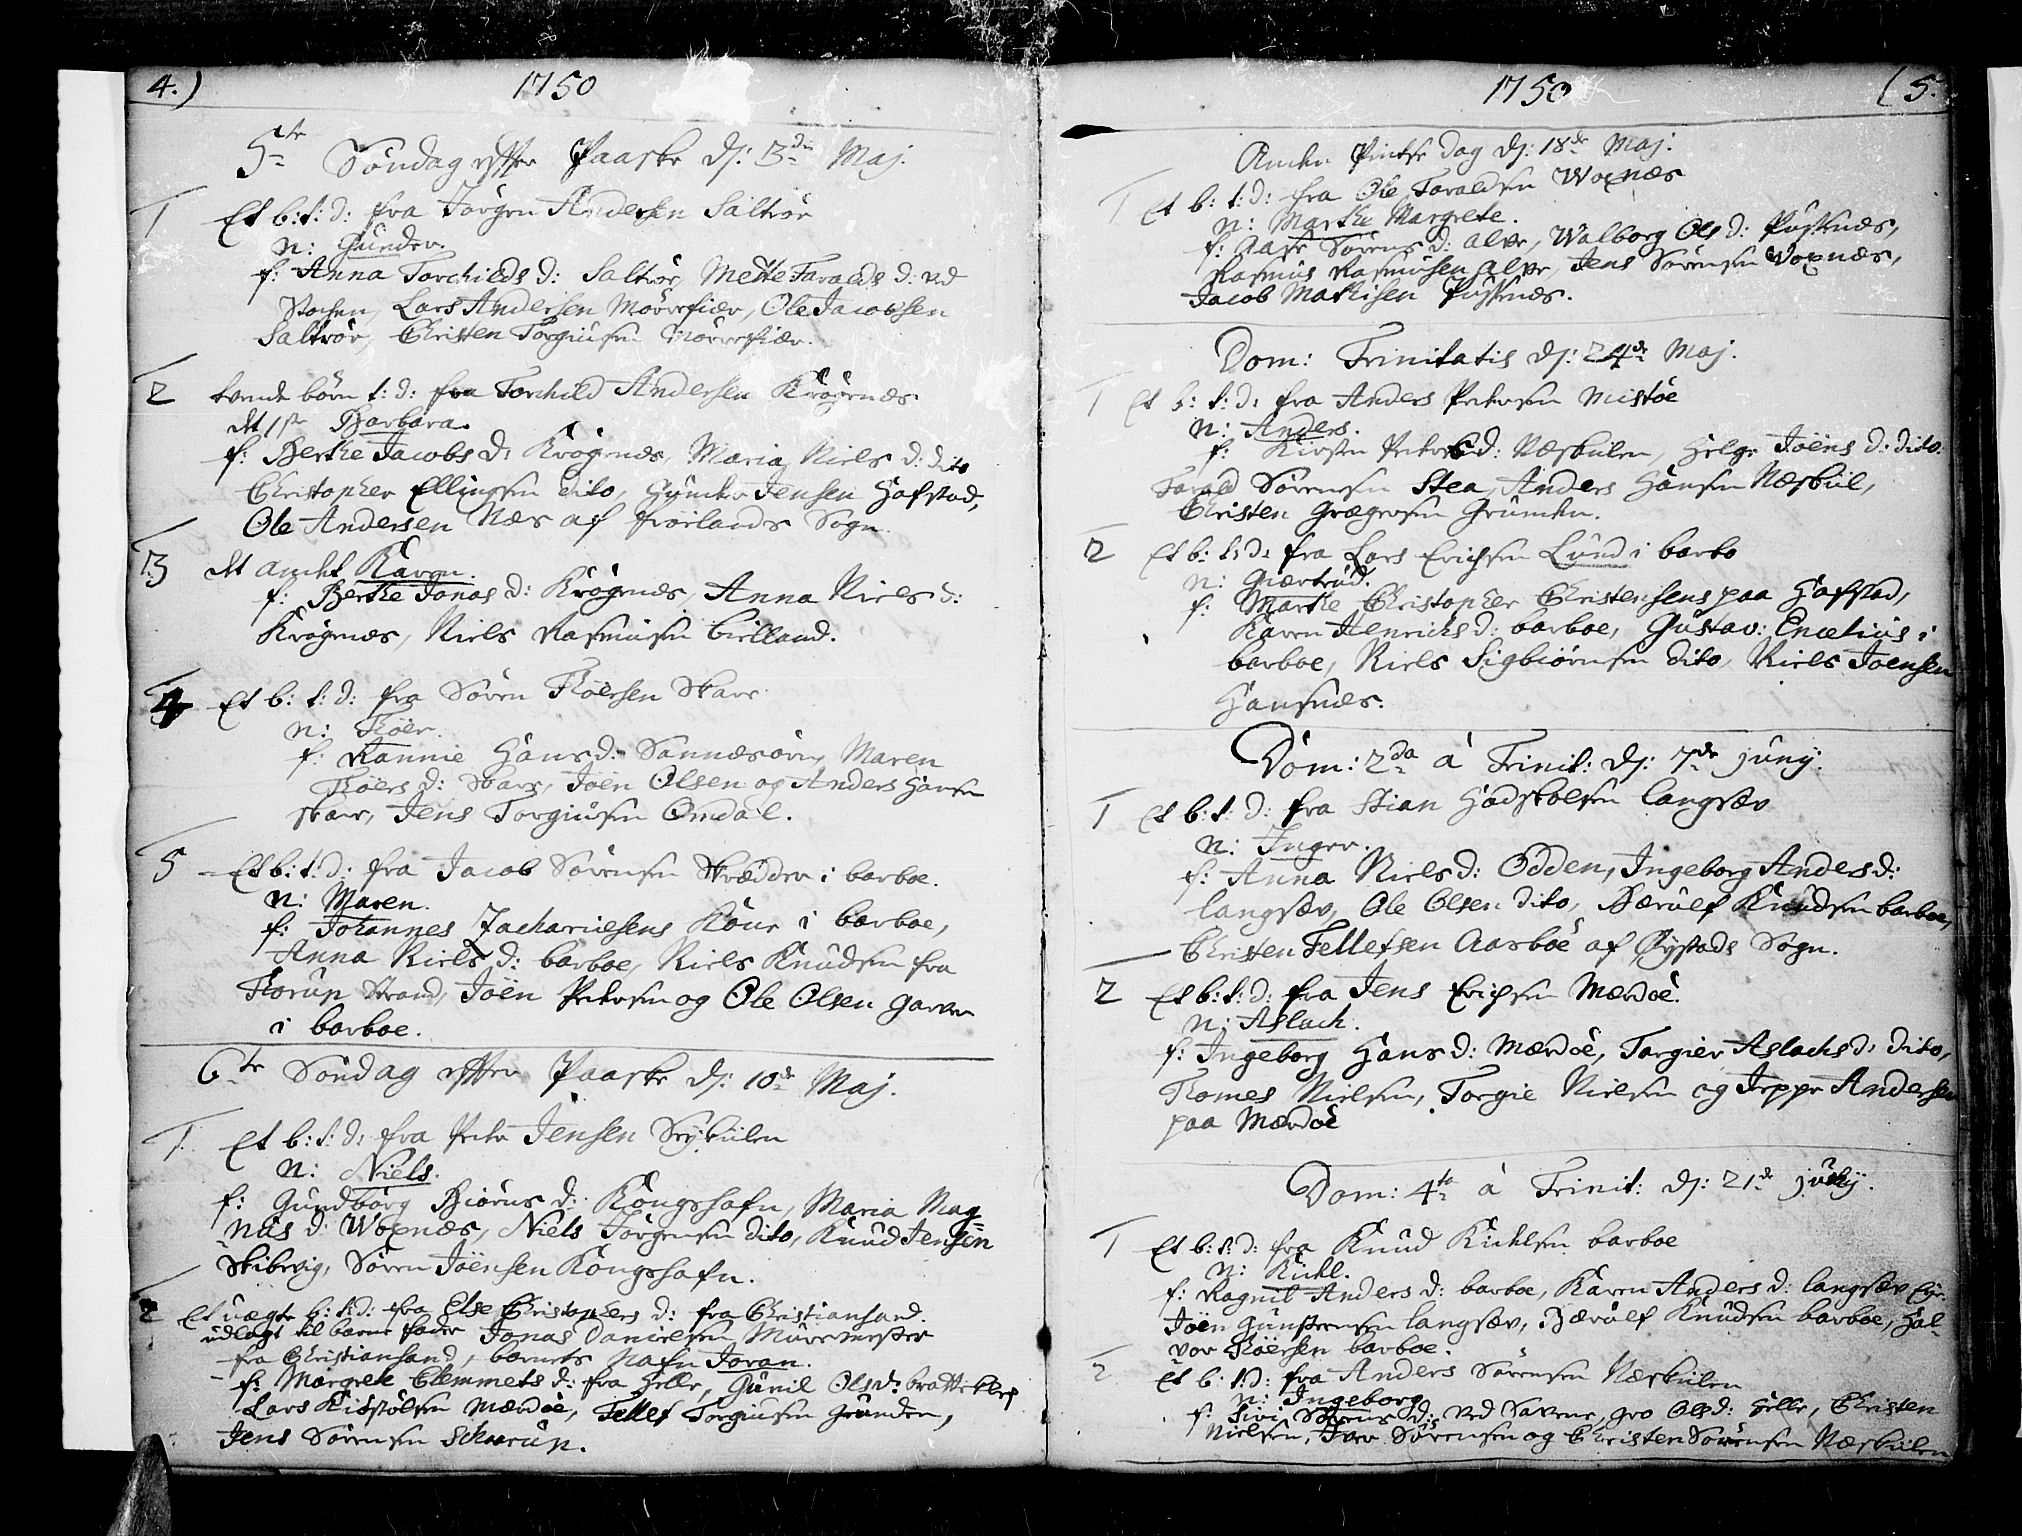 4.) 1750
5te Søndag efter Paaske d: 3die Maj.
1 Et b: t: d: fra Jørgen Andersen Saltrør
n: Gunder.
f: Anna Torchilds d: Saltrør, Mette Taralds d: ved
Stochen, Lars Andersen Mørrefiær, Ole Jacobsen
Saltrør, Christen Torgiusen Mørrefiær.
2 tvende børn t: d: fra Torchild Andersen Krøgenæs
det 1ste Barbara.
f: Berthe Jacobs d: Krøgenæs, Maria Niels d: dito
Christopher Ellingsen dito, Gunder Jensen Hafstad,
Ole Andersen Næs af Froelands Sogn.
3 det andet Karen.
f: Berthe Jonas d: Krøgenæs, Anna Niels d:
Krøgenæs, Niels Rasmusen bielland.
4 Et b: t: d: fra Søren Thoersen Skare
n: Thoer.
f: Rannie Hans d: Sannæsøen, Maren
Thoers d: Skare, Joen Olsen og Anders Hansen
skare, Jens Torgiusen Omdal.
5 Et b: t: d: fra Jacob Sørensen Skrædder i barboe.
n: Maren.
f: Johannes Zachariesens Kone i barboe,
Anna Niels d: barboe, Niels Knudsen fra
Thorup Strand, Joen Petersen og Ole Olsen garver
i barboe.
6te Søndag efter Paaske d: 10de Maj.
1. Et b: t: d: fra Peder Jensen
n: Niels.
f: Gundborg Biørns d: Kongshafn, Maria Mag=
nus d: Woxnæs, Niels Jørgensen dito, Knud Jensen
Skibevig, Søren Joensen Kongshafn.
2 Et uægte b: t: d: fra Else Christophers d: fra Christiansand.
udlagt til barne fader Jonas Danielsen Muurmester
fra Christiansand, barnets Nafn Joran.
f: Margrete Clemmets d: fra Helle, Gunil Ols d: bratteklef
Lars Kidstølsen Mærdøe, Tellef Torgiusen Grunden,
Jens Sørensen
1750 (5.
Anden Pintse dag d: 18de Maj.
1 Et b: t: d: fra Ole Taraldsen Woxnæs
n: Marthe Margrete.
f: Aase Sørens d: Alve, Walborg Ols d: Pusnæs,
Rasmus Rasmusen Alve, Jens Sørensen Woxnæs,
Jacob Mathisen Pusnæs.
Dom: Trinitatis d: 24de Maj.
1 Et b: t: d: fra Anders Pedersen Mistøe
n: Anders.
f: Kirsten Peders d: Næskilen, Helge Joens d: dito.
Tarald Sørensen Stea, Anders Hansen Næskiil,
Christen Grægersen Grunden.
2 Et b: t: d: fra Lars Erichsen Lund i barbo
n: Giertrud.
f: Marthe Christopher Christensens paa Hafstad,
Karen Henrichs d: barboe, Gustav: i
barboe, Niels Sigbiørnsen dito, Niels Joensen
Hansnæs.
Dom: 2da a Trinit: d: 7de juny.
1 Et b: t: d: fra Stian Gudskolsen langsæv
n: Inger.
f: Anna Niels d: Odden, Ingeborg Anders d:
langsæv, Ole Olsen dito, Bærulf Knudsen barboe,
Christen Tellefsen Aasboe af Øysteds Sogn.
2 Et b: t: d: fra Jens Erichsen Mærdøe.
n: Aslach.
f: Ingeborg Hans d: Mærdøe, Torgier Aslachs d: dito,
Thomes Nielsen, Torgie Nielsen og Jeppe Andersen
paa Mærdøe
Dom: 4ta a Trinit: d: 21de juny.
1 Et b: t: d: fra Knud Kittelsen barboe
n: Kittel.
f: Ragnil Anders d: barboe, Karen Anders d: langsæv
Joen Gunstensen langsæv, Bærulf Knudsen barboe, Hal-
vor Thoersen barboe.
2 Et b: t: d: fra Anders Sørensen Næskilen
n: Ingeborg
f: Siri Sørens d: ved Savene, Gro Ols d: Helle, Christen
Nielsen, Iver Sørensen og Christen Sørensen Næskilen